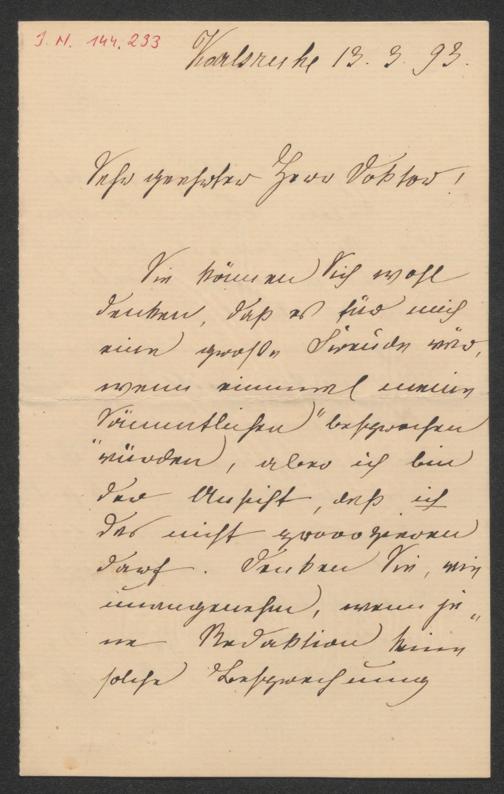 J. N. 144.233
Karlsruhe 13. 3. 93.
Sehr geehrter Herr Doktor!
Sie können Sich wohl
denken, daß es für mich
eine große Freude wär,
wenn einmal meine
"Sämmtlichen" besprochen
würden, aber ich bin
der Ansicht, daß ich
das nicht provozieren
darf. Denken Sie, wie
unangenehm, wenn je-
ne Redaktion keine
solche Besprechung